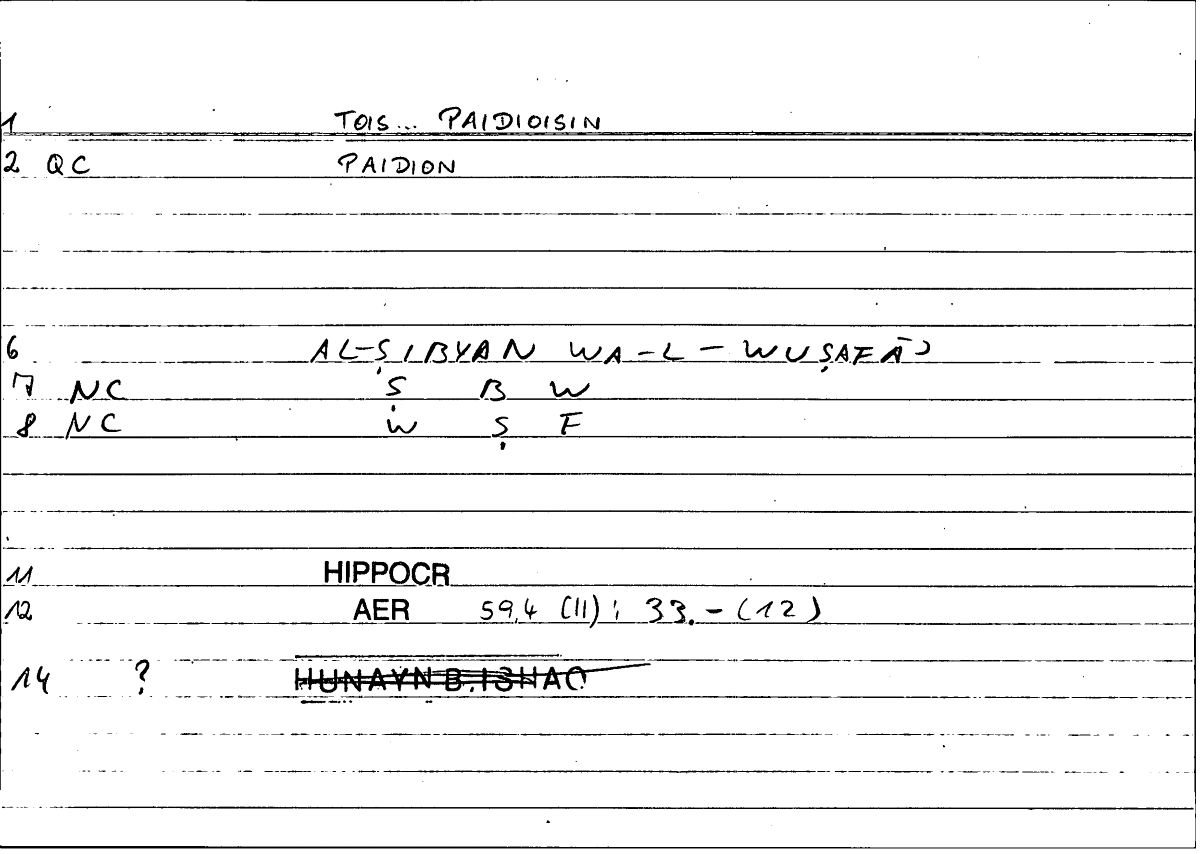 1 TOIS... PAIDIOISIN
2 QC PAIDION
6 AL-ṢIBYAN WA-L-WUṢAFĀʾ
7 NC Ṣ B W
8 NC W Ṣ F
11 HIPPOCR
12 AER 59,4 (11) : 33.-(12)
14 ? HUNAYN B. ISHAQ